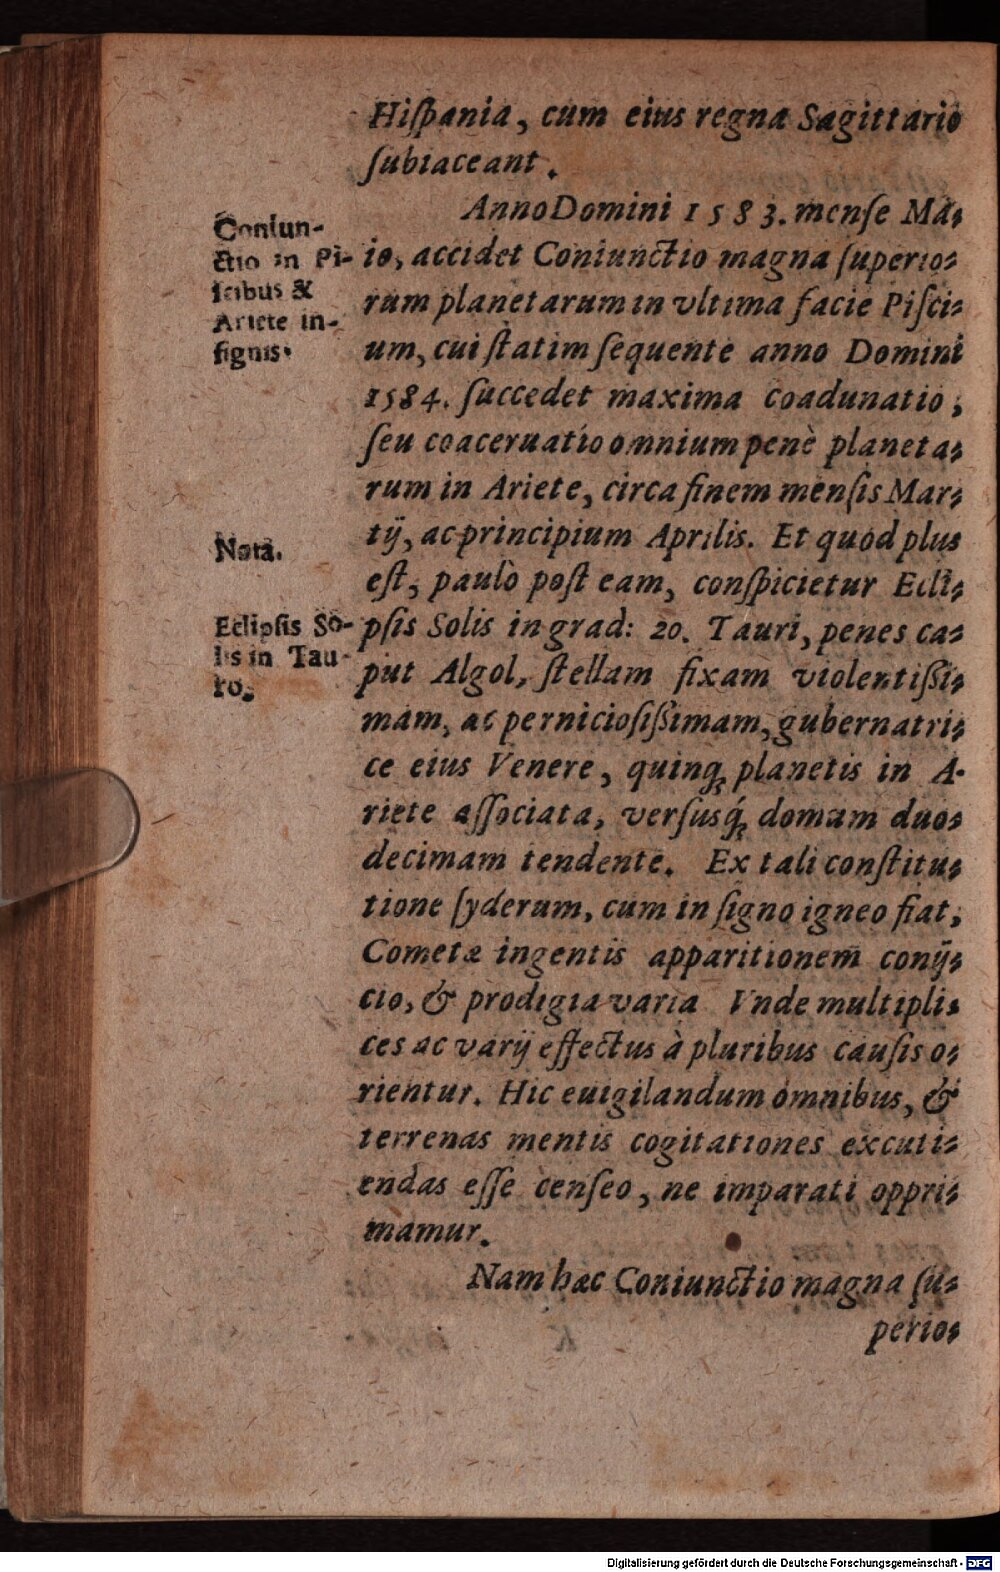 Hiſpania, cum eius regna Sagittario
ſubiaceant.
Anno Domini 1583. menſe Ma⸗
io, accidet Coniunctio magna ſuperio⸗
rum planetarum in vltima facie Piſci⸗
um, cui ſtatim ſequente anno Domini
1584. ſuccedet maxima coadunatio,
ſeu coaceruatio omnium penè planeta⸗
rum in Ariete, circa finem menſis Mar⸗
tĳ, ac principium Aprilis. Et quòd plus
eſt, paulò poſt eam, conſpicietur Ecli⸗
pſis Solis in grad: 20. Tauri, penes ca⸗
put Algol, ſtellam fixam violentiſſi⸗
mam, ac pernicioſiſſimam, gubernatri⸗
ce eius Venere, quinq́; planetis in A-
riete aſſociata, verſusq́; domum duo⸗
decimam tendente. Ex tali conſtitu⸗
tione ſyderum, cum in ſigno igneo fiat,
Cometæ ingentis apparitionem conĳ⸗
cio, & prodigia varia Vnde multipli⸗
ces ac varĳ effectus à pluribus cauſis o⸗
rientur. Hic euigilandum omnibus, &
terrenas mentis cogitationes excuti⸗
endas eſſe cenſeo, ne imparati oppri⸗
mamur.
Nam hæc Coniunctio magna ſu⸗
perio⸗
Coniun-
ctio in Pi-
ſcibus &
Ariete in-
ſignis.
Nota.
Eclipſis So-
lis in Tau-
ro.
Digitalisierung gefördert durch die Deutsche Forschungsgemeinschaft - DFG